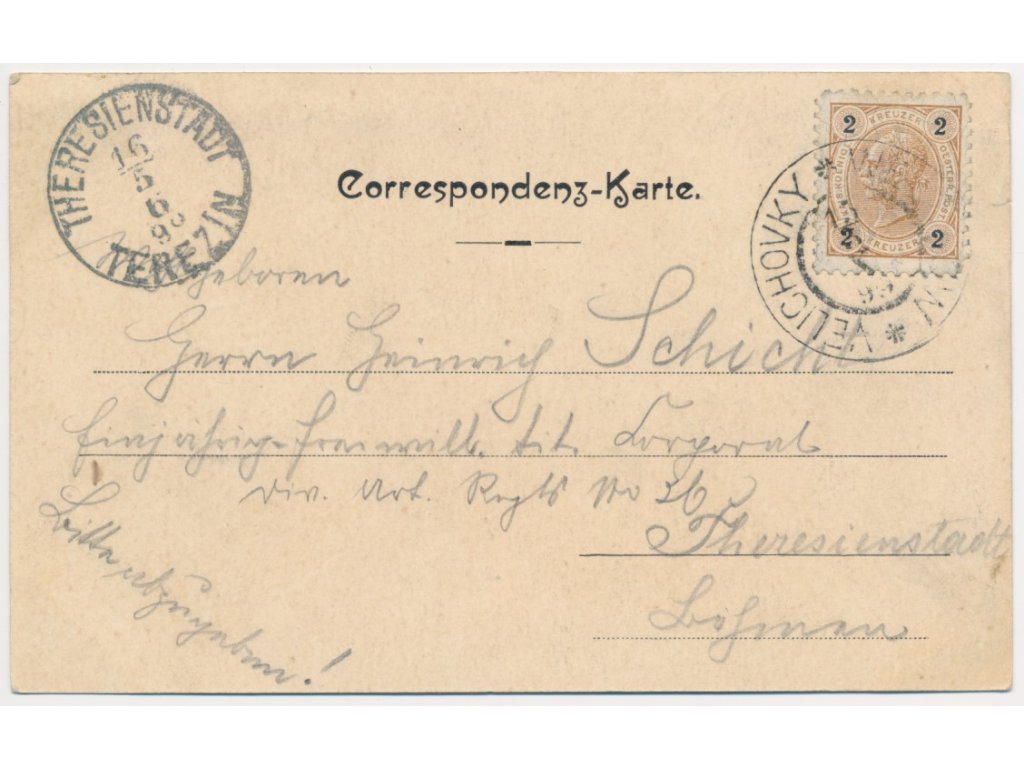 THERESIENSTADT
16
5
6
98
TEREZÍN
2 KREUZER 2
2 KREUZER 2
VELICHOVKY
Correspondenz-Karte.
geboren
Herrn Heinrich Schicht
Einjährig-Freiwill. tit. Corporal
Div. Art. Regts No 26
Theresienstadt
Böhmen
Bitte abzugeben!